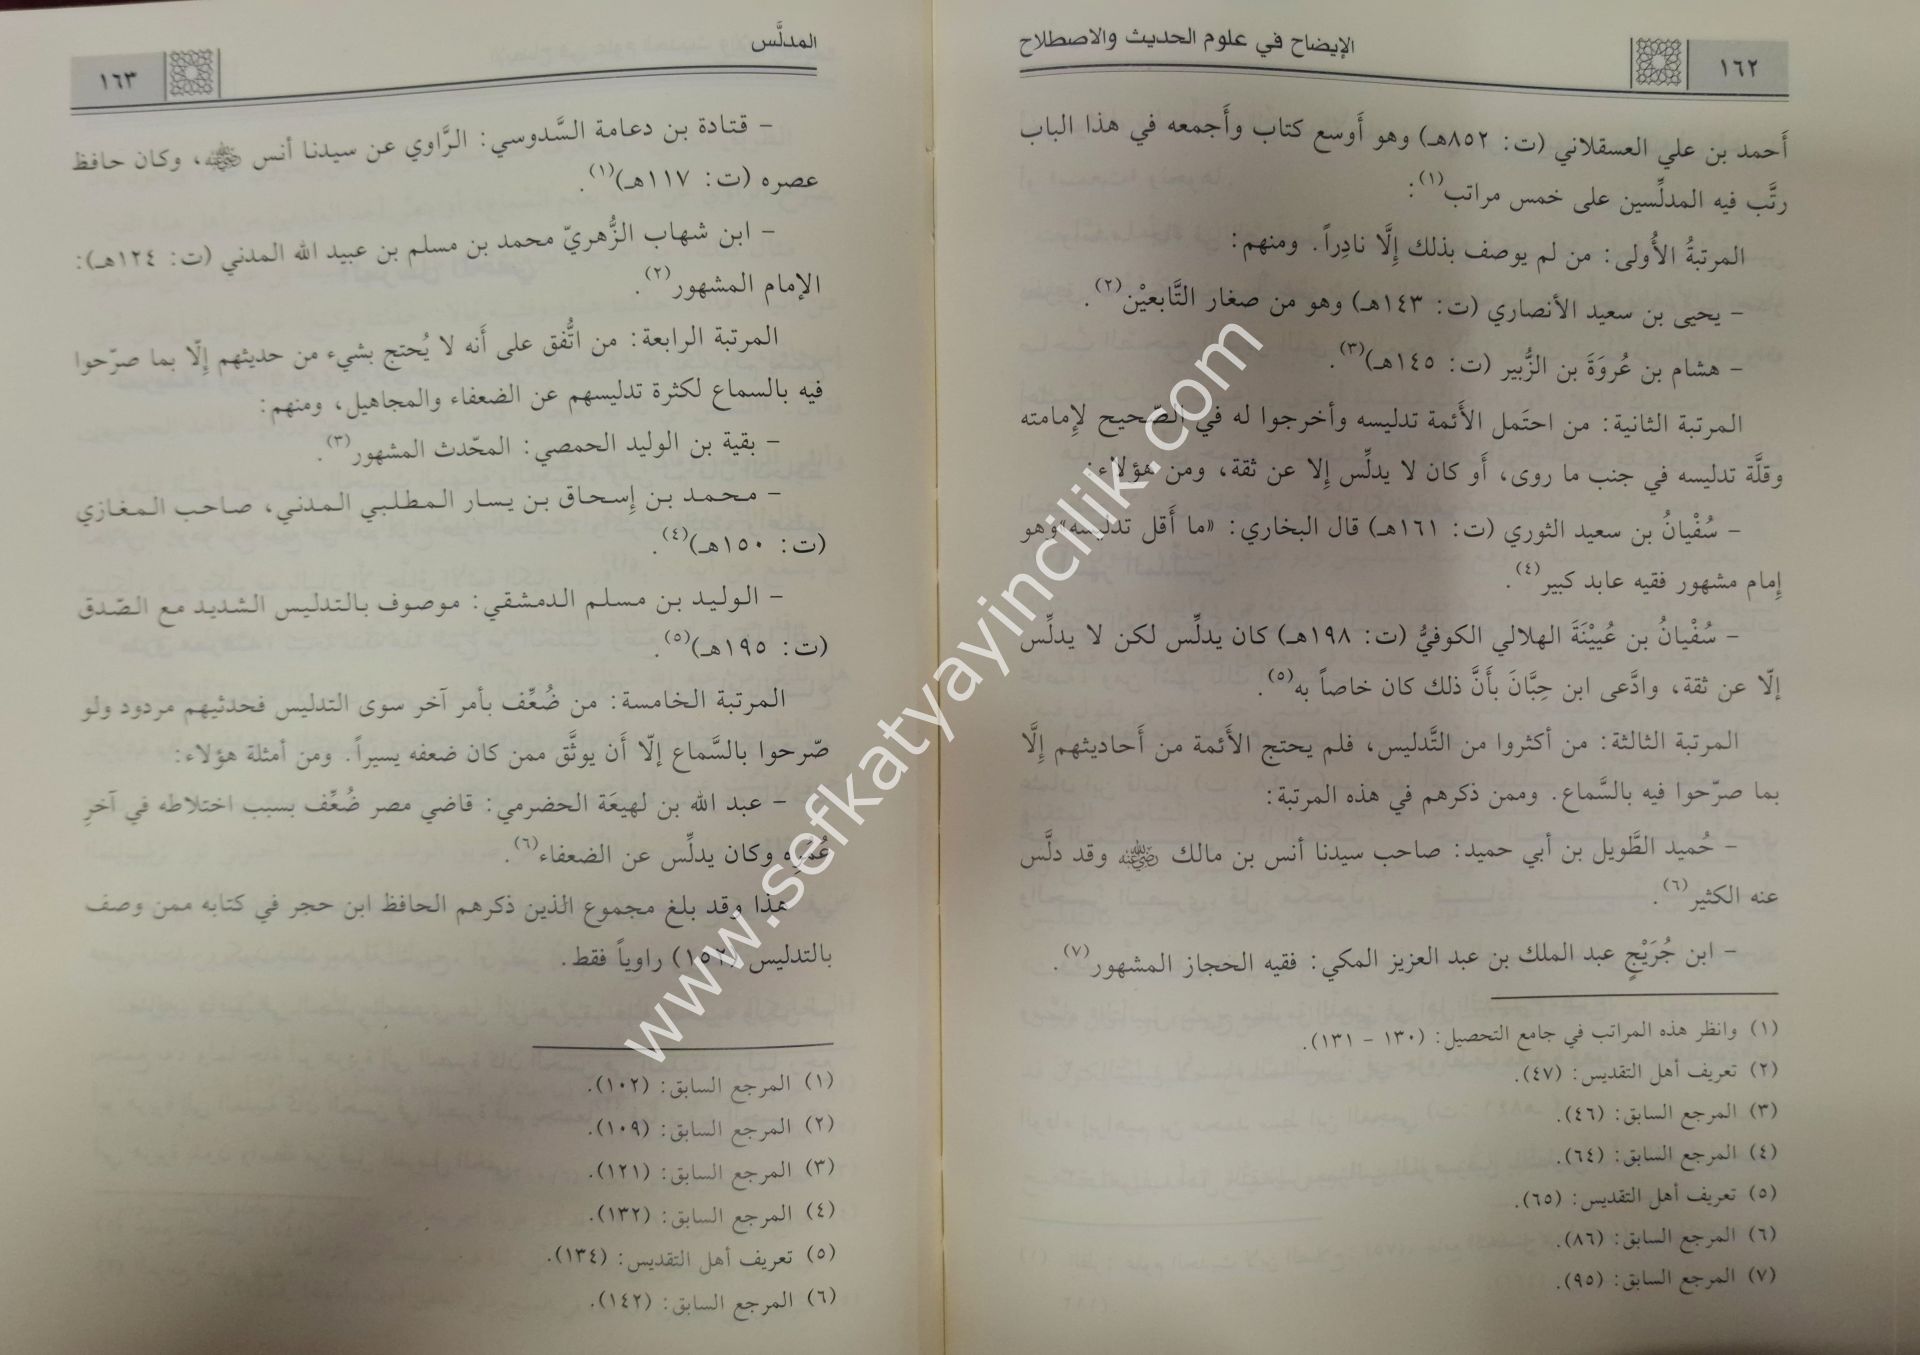 ١٦٢
الإيضاح في علوم الحديث والاصطلاح
أَحمد بن علي العسقلاني (ت: ٨٥٢هـ) وهو أَوسع كتاب وأَجمعه في هذا الباب
رتَّب فيه المدلِّسين على خمس مراتب(١):
المرتبةُ الأُولى: من لم يوصف بذلك إِلَّا نادِراً. ومنهم:
– يحيى بن سعيد الأنصاري (ت: ١٤٣هـ) وهو من صغار التَّابعيْن(٢).
– هشام بن عُروَةَ بن الزُّبير (ت: ١٤٥هـ)(٣).
المرتبة الثانية: من احتَمل الأَئمة تدليسه وأخرجوا له في الصّحيح لإِمامته
وقلَّة تدليسه في جنب ما روى، أَو كان لا يدلِّس إِلا عن ثقة، ومن هؤلاء:
– سُفْيانُ بن سعيد الثوري (ت: ١٦١هـ) قال البخاري: «ما أَقل تدليسه» وهو
إِمام مشهور فقيه عابد كبير(٤).
– سُفْيانُ بن عُيَيْنَةَ الهلالي الكوفيُّ (ت: ١٩٨هـ) كان يدلِّس لكن لا يدلِّس
إلّا عن ثقة، وادَّعى ابن حِبَّانَ بأَنَّ ذلك كان خاصاً به(٥).
المرتبة الثالثة: من أكثروا من التَّدليس، فلم يحتج الأَئمة من أَحاديثهم إِلَّا
بما صرّحوا فيه بالسَّماع. وممن ذكرهم في هذه المرتبة:
– حُميد الطَّويل بن أبي حميد: صاحب سيدنا أنس بن مالك رضي الله عنه وقد دلَّس
عنه الكثير(٦).
– ابن جُرَيْجٍ عبد الملك بن عبد العزيز المكي: فقيه الحجاز المشهور(٧).
(١) وانظر هذه المراتب في جامع التحصيل: (١٣٠ – ١٣١).
(٢) تعريف أهل التقديس: (٤٧).
(٣) المرجع السابق: (٤٦).
(٤) المرجع السابق: (٦٤).
(٥) تعريف أهل التقديس: (٦٥).
(٦) المرجع السابق: (٨٦).
(٧) المرجع السابق: (٩٥).
المدلَّس
١٦٣
– قتادة بن دعامة السَّدوسي: الرَّاوي عن سيدنا أنس رضي الله عنه، وكان حافظ
عصره (ت: ١١٧هـ)(١).
– ابن شهاب الزُّهريّ محمد بن مسلم بن عبيد الله المدني (ت: ١٢٤هـ):
الإمام المشهور(٢).
المرتبة الرابعة: من اتُّفق على أَنه لا يُحتج بشيء من حديثهم إِلّا بما صرّحوا
فيه بالسماع لكثرة تدليسهم عن الضعفاء والمجاهيل، ومنهم:
– بقية بن الوليد الحمصي: المحّدث المشهور(٣).
– محمد بن إِسحاق بن يسار المطلبي المدني، صاحب المغازي
(ت: ١٥٠هـ)(٤).
– الوليد بن مسلم الدمشقي: موصوف بالتدليس الشديد مع الصّدق
(ت: ١٩٥هـ)(٥).
المرتبة الخامسة: من ضُعِّف بأمر آخر سوى التدليس فحدثيهم مردود ولو
صّرحوا بالسَّماع إلّا أَن يوثَّق ممن كان ضعفه يسيراً. ومن أمثلة هؤلاء:
– عبد الله بن لهيعَة الحضرمي: قاضي مصر ضُعِّف بسبب اختلاطه في آخرِ
عُمُرِه وكان يدلِّس عن الضعفاء(٦).
هذا وقد بلغ مجموع الذين ذكرهم الحافظ ابن حجر في كتابه ممن وصف
بالتدليس (١٥٢) راوياً فقط.
(١) المرجع السابق: (١٠٢).
(٢) المرجع السابق: (١٠٩).
(٣) المرجع السابق: (١٢١).
(٤) المرجع السابق: (١٣٢).
(٥) تعريف أهل التقديس: (١٣٤).
(٦) المرجع السابق: (١٤٢).
www.sefkatyayincilik.com